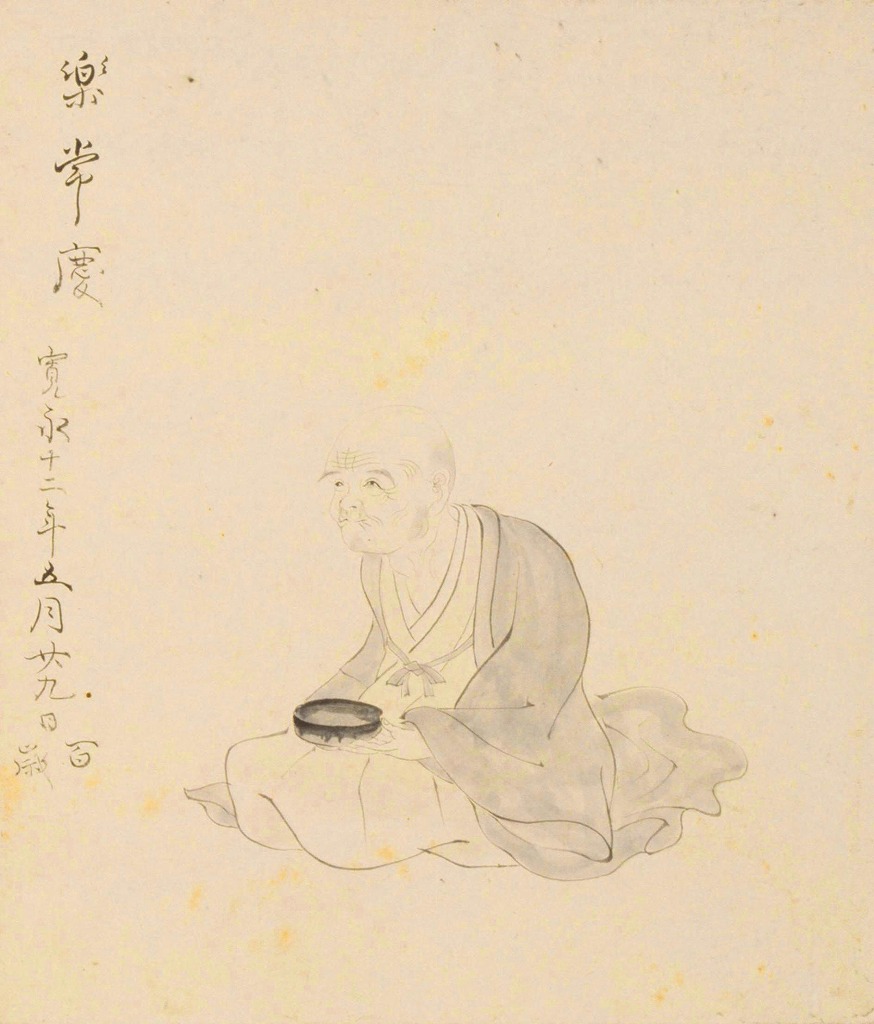 樂常慶
寛永十二年五月廿九日
百歳